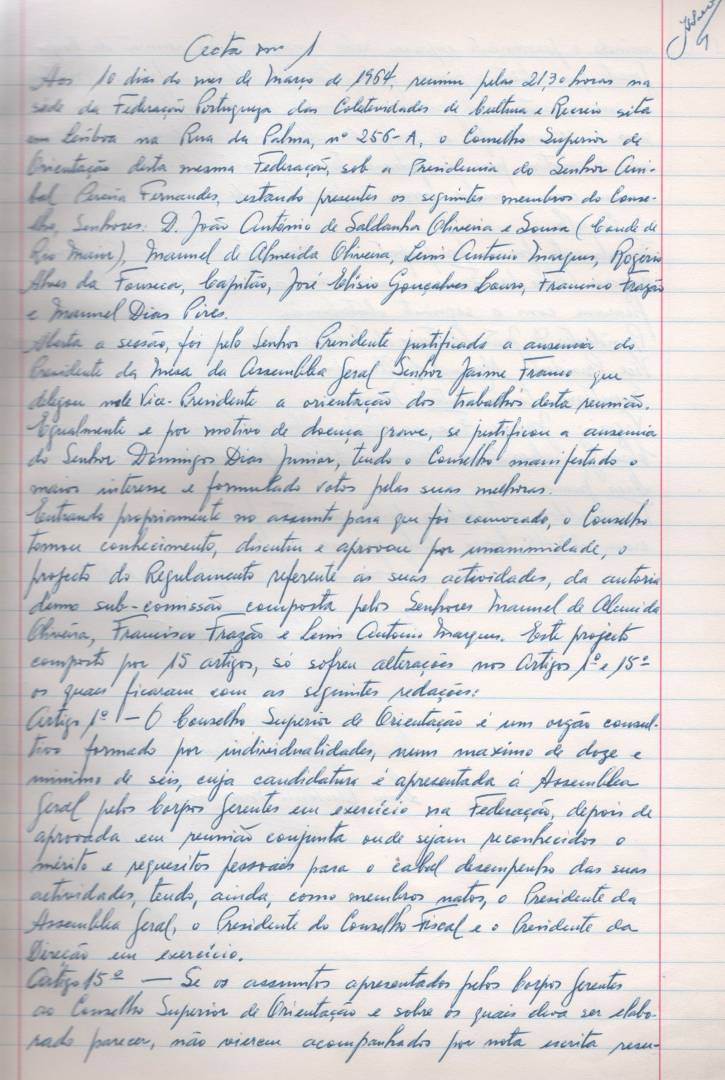 Acta nº 1
Aos 10 dias do mes de Março de 1964, reuniu pelas 21,30 horas na
sede da Federação Portuguesa das Coletividades de Cultura e Recreio sita
em Lisboa na Rua da Palma, nº 256-A, o Conselho Superior de
Orientação desta mesma Federação, sob a Presidencia do Senhor Anni-
bal Pereira Fernandes, estando presentes os seguintes membros do Conse-
lho, Senhores: D. João António de Saldanha Oliveira e Sousa (Conde de
Rio Maior), Manuel de Almeida Oliveira, Luis Antonio Marques, Rogério
Alves da Fonseca, Capitão, José Elisio Gonçalves Louro, Francisco Frazão
e Manuel Dias Pires.
Aberta a sessão, foi pelo Senhor Presidente justificada a ausencia do
Presidente da Mesa da Assemblea Geral Senhor Jaime Franco que
delegou nele Vice-Presidente a orientação dos trabalhos desta reunião.
Egualmente e por motivo de doença grave, se justificou a ausencia
do Senhor Domingos Dias Junior, tendo o Conselho manifestado o
maior interesse e formulado votos pelas suas melhoras.
Entrando propriamente no assunto para que foi convocado, o Conselho
tomou conhecimento, discutiu e aprovou por unanimidade, o
projecto do Regulamento referente ás suas actividades, da autoria
duma sub-comissão composta pelos Senhores Manuel de Almeida
Oliveira, Francisco Frazão e Luis Antonio Marques. Este projecto
composto por 15 artigos, só sofreu alterações nos Artigos 1º e 15º
os quais ficaram com as seguintes redações:
Artigo 1º — O Conselho Superior de Orientação é um orgão consul-
tivo formado por individualidades, num maximo de doze e
minimo de seis, cuja candidatura é apresentada á Assemblea
Geral pelos Corpos Gerentes em exercício na Federação, depois de
aprovada em reunião conjunta onde sejam reconhecidos o
mérito e requesitos pessoais para o cabal desempenho das suas
actividades, tendo, ainda, como membros natos, o Presidente da
Assemblea Geral, o Presidente do Conselho Fiscal e o Presidente da
Direção em exercício.
Artigo 15º — Se os assuntos apresentados pelos Corpos Gerentes
ao Conselho Superior de Orientação e sobre os quais deva ser elabo-
rado parecer, não vierem acompanhados por nota escrita resu-